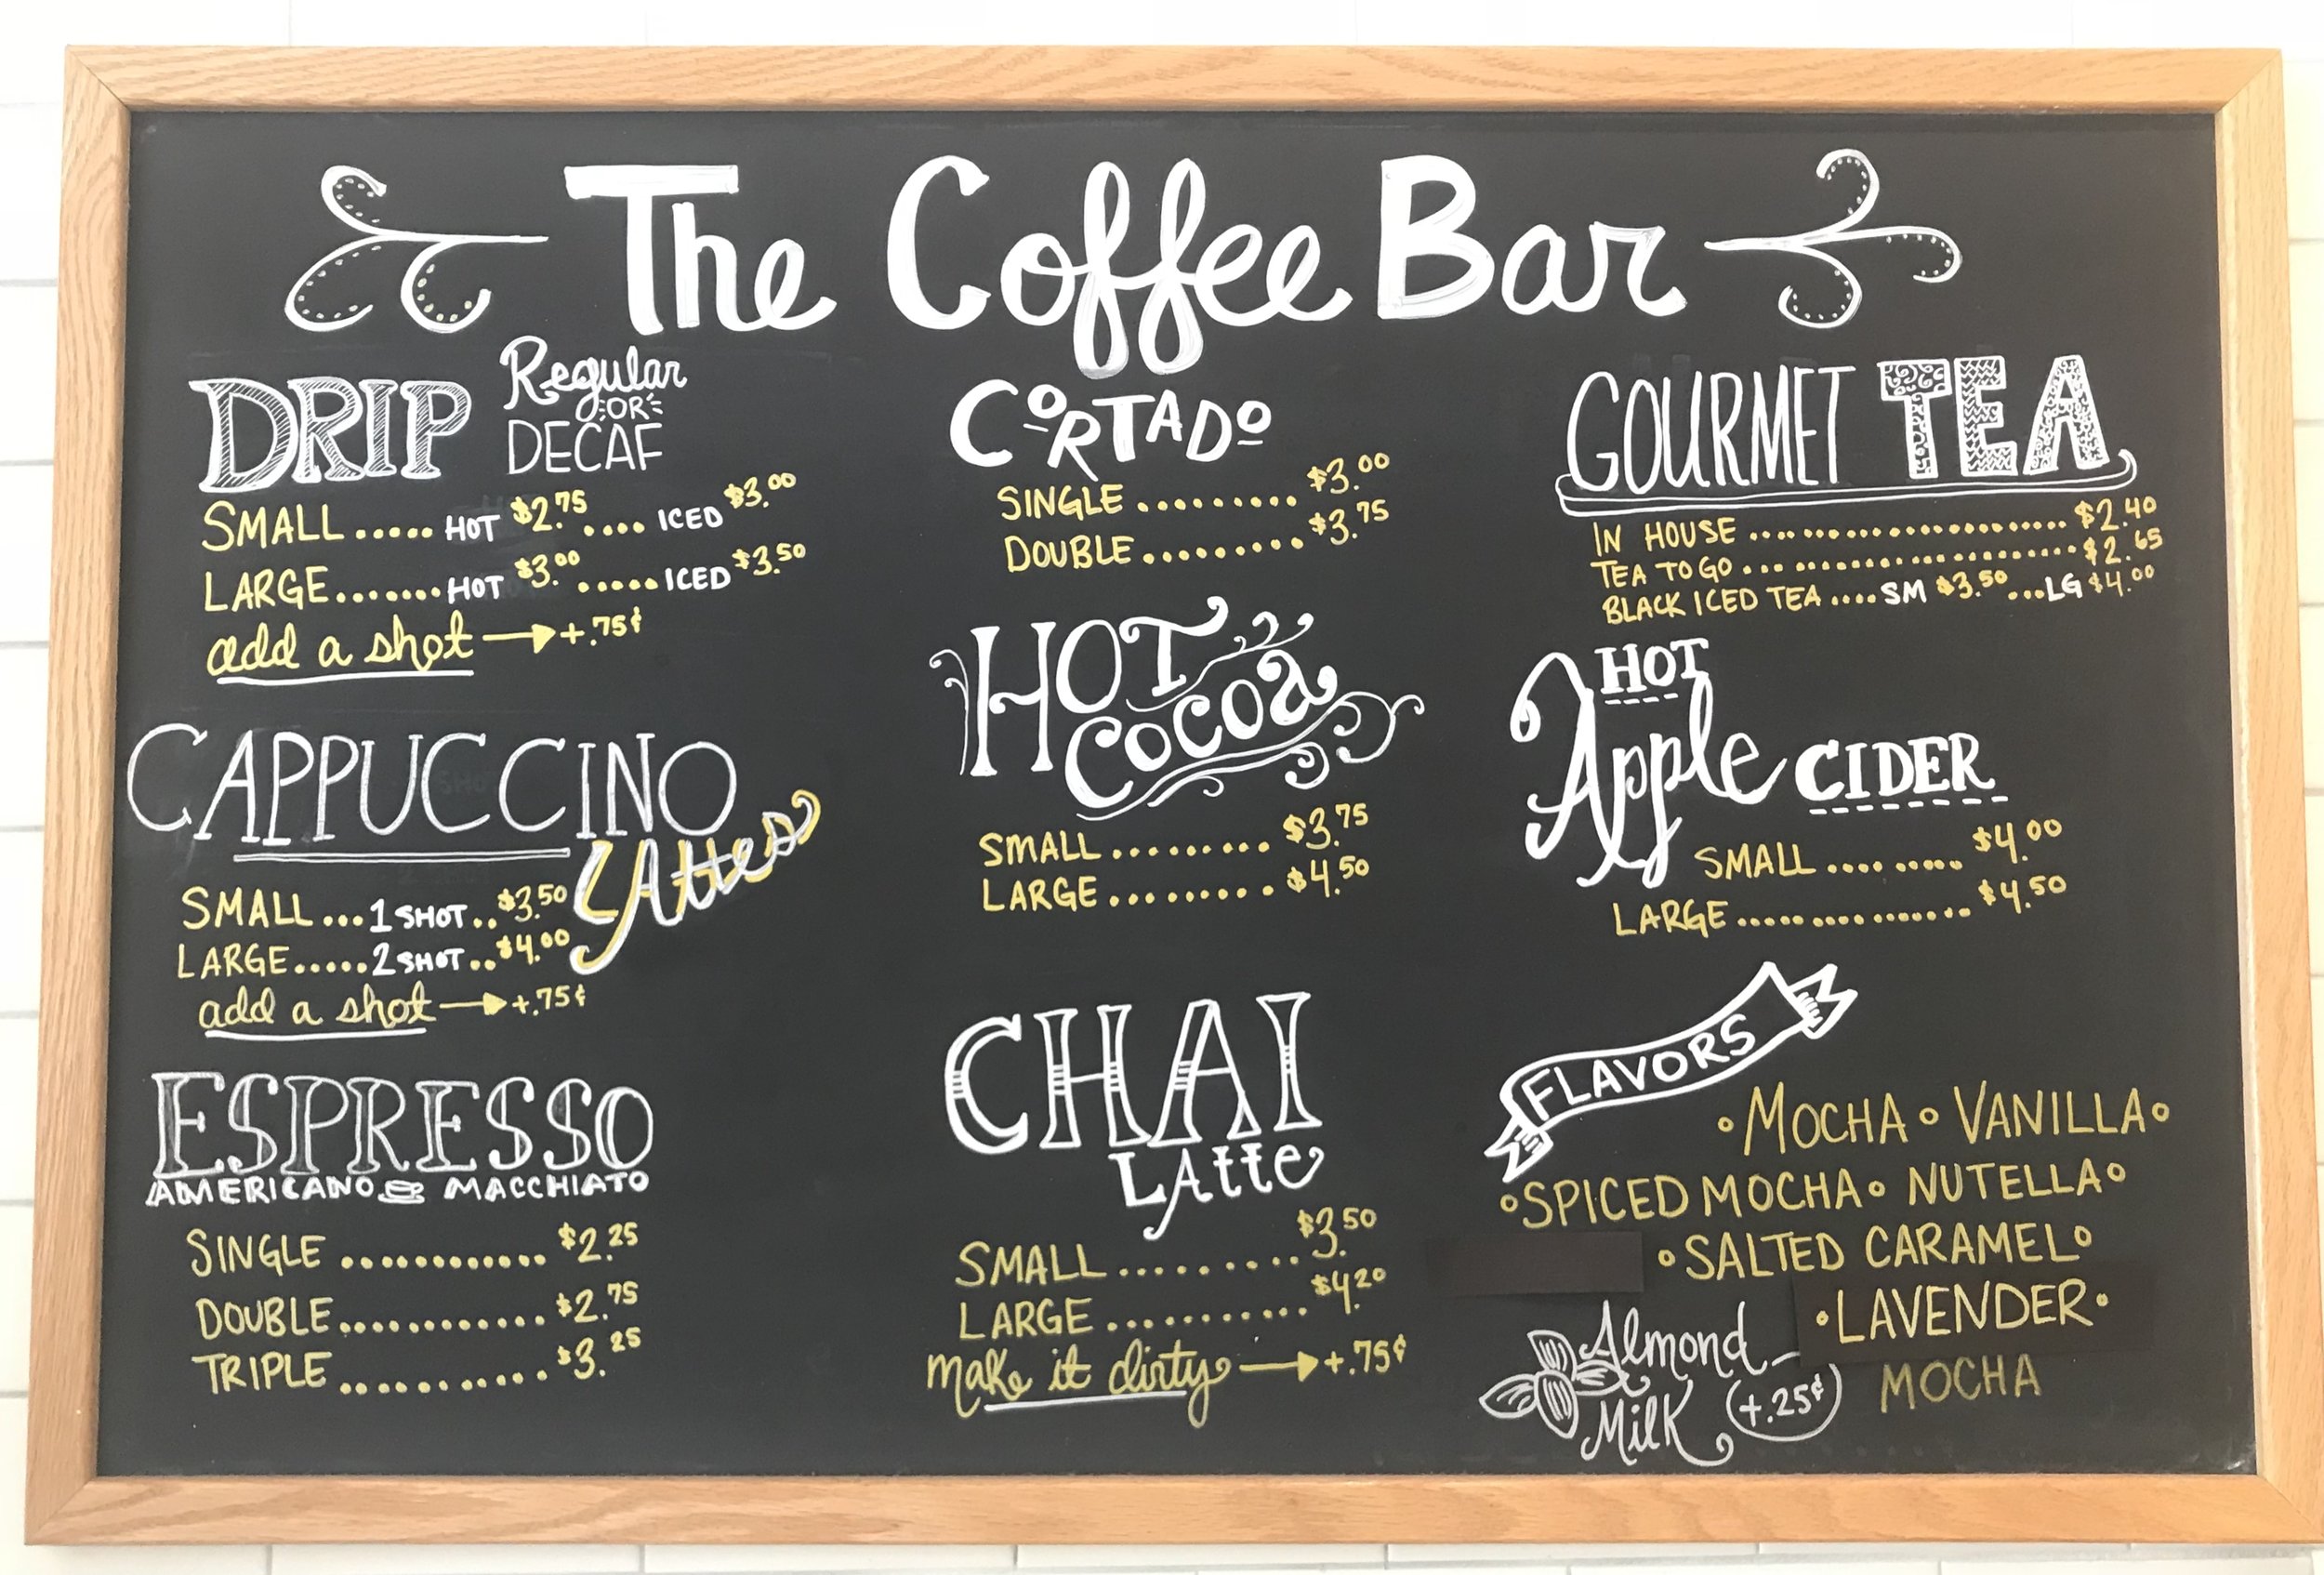 The Coffee Bar
DRIP Regular OR DECAF
SMALL ..... HOT $2.75 .... ICED $3.00
LARGE ....... HOT $3.00 ..... ICED $3.50
add a shot → +.75¢
CAPPUCCINO
LAttes
SMALL ... 1 SHOT .. $3.50
LARGE ..... 2 SHOT .. $4.00
add a shot → +.75¢
ESPRESSO
AMERICANO MACCHIATO
SINGLE ............ $2.25
DOUBLE ............ $2.75
TRIPLE ........... $3.25
CORTADO
SINGLE ......... $3.00
DOUBLE ......... $3.75
HOT
COCOA
SMALL ......... $3.75
LARGE ......... $4.50
CHAI
LAtte
SMALL .......... $3.50
LARGE ........... $4.20
make it dirty → +.75¢
GOURMET TEA
IN HOUSE ........................ $2.40
TEA TO GO ........................ $2.65
BLACK ICED TEA .... SM $3.50 ... LG $4.00
HOT
Apple CIDER
SMALL ......... $4.00
LARGE ................ $4.50
FLAVORS
• MOCHA • VANILLA •
• SPICED MOCHA • NUTELLA •
• SALTED CARAMEL •
• LAVENDER •
MOCHA
Almond
Milk +.25¢